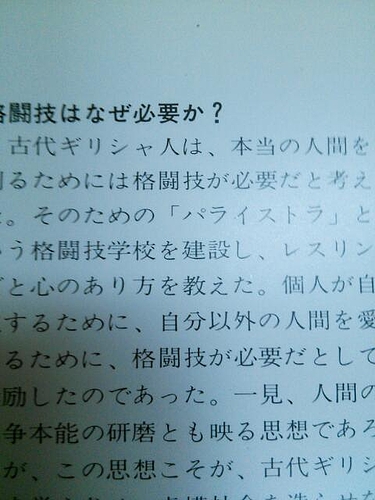 格闘技はなぜ必要か？
古代ギリシャ人は、本当の人間を
るためには格闘技が必要だと考え
。そのための「パライストラ」と
う格闘技学校を建設し、レスリン
と心のあり方を教えた。個人が自
するために、自分以外の人間を愛
るために、格闘技が必要だとして
励したのであった。一見、人間の
争本能の研磨とも映る思想であろ
が、この思想こそが、古代ギリシ